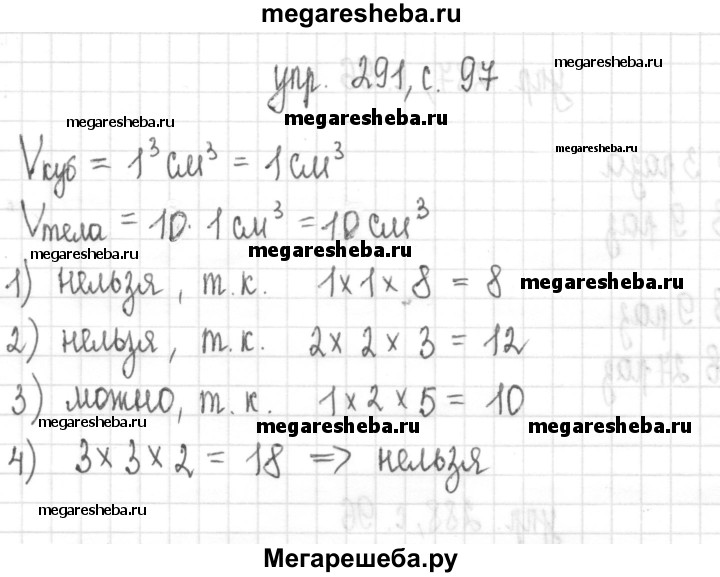 megaresheba.ru
упр. 291, с. 97
megaresheba.ru
megaresheba.ru
megaresheba.ru
Vкуб = 1³ см³ = 1 см³
megaresheba.ru
Vтела = 10 · 1 см³ = 10 см³
megaresheba.ru
1) нельзя, т.к. 1 × 1 × 8 = 8
megaresheba.ru
2) нельзя, т.к. 2 × 2 × 3 = 12
3) можно, т.к. 1 × 2 × 5 = 10
megaresheba.ru
megaresheba.ru
megaresheba.ru
4) 3 × 3 × 2 = 18 => нельзя
megaresheba.ru
Мегарешеба.ру